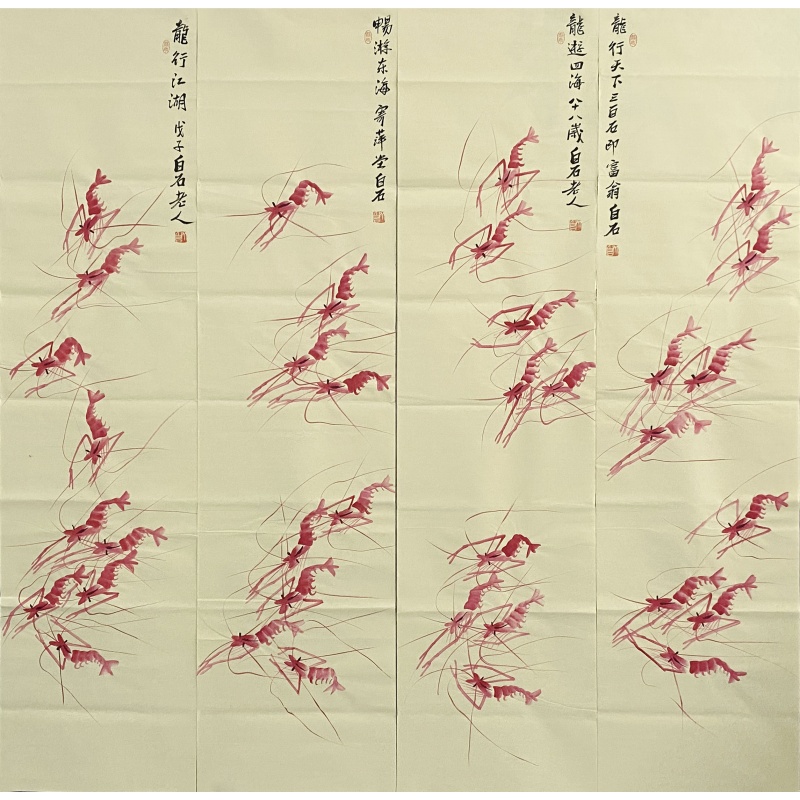 龍行天下三百石印富翁白石
龍遊四海 八十八歲白石老人
暢游东海 寄萍堂白石
龍行江湖 戊子白石老人